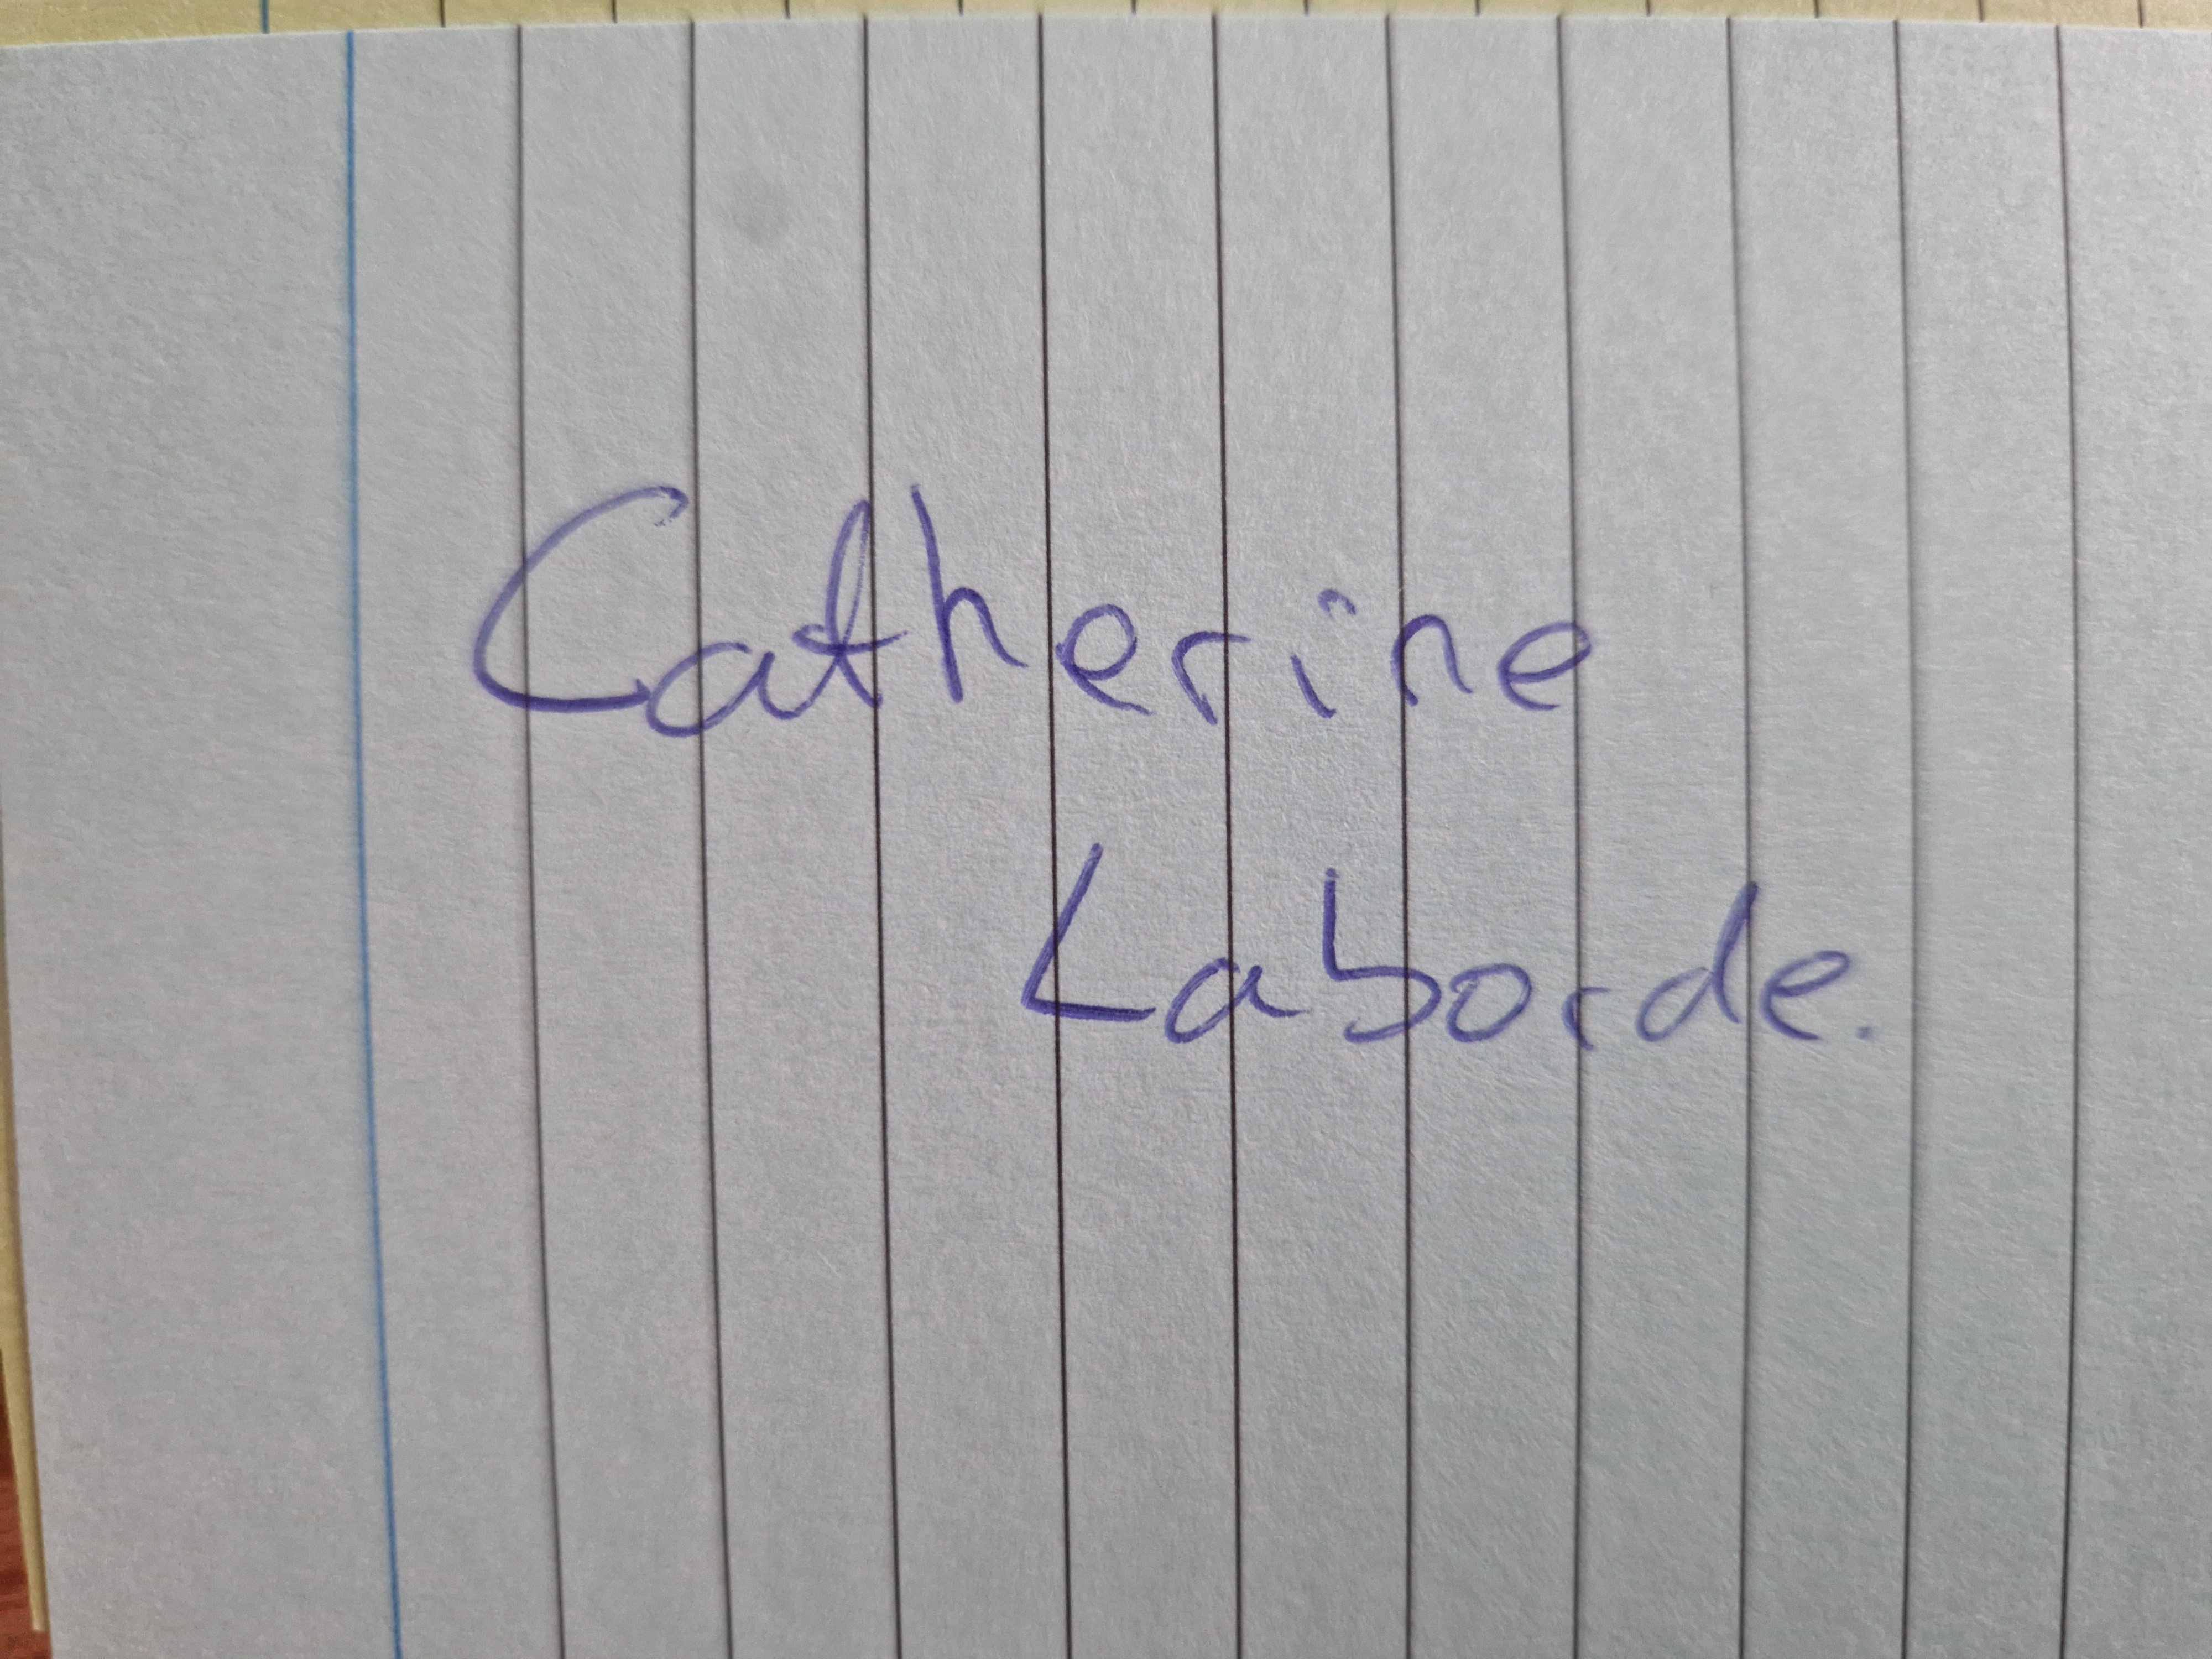 Catherine
Laborde.